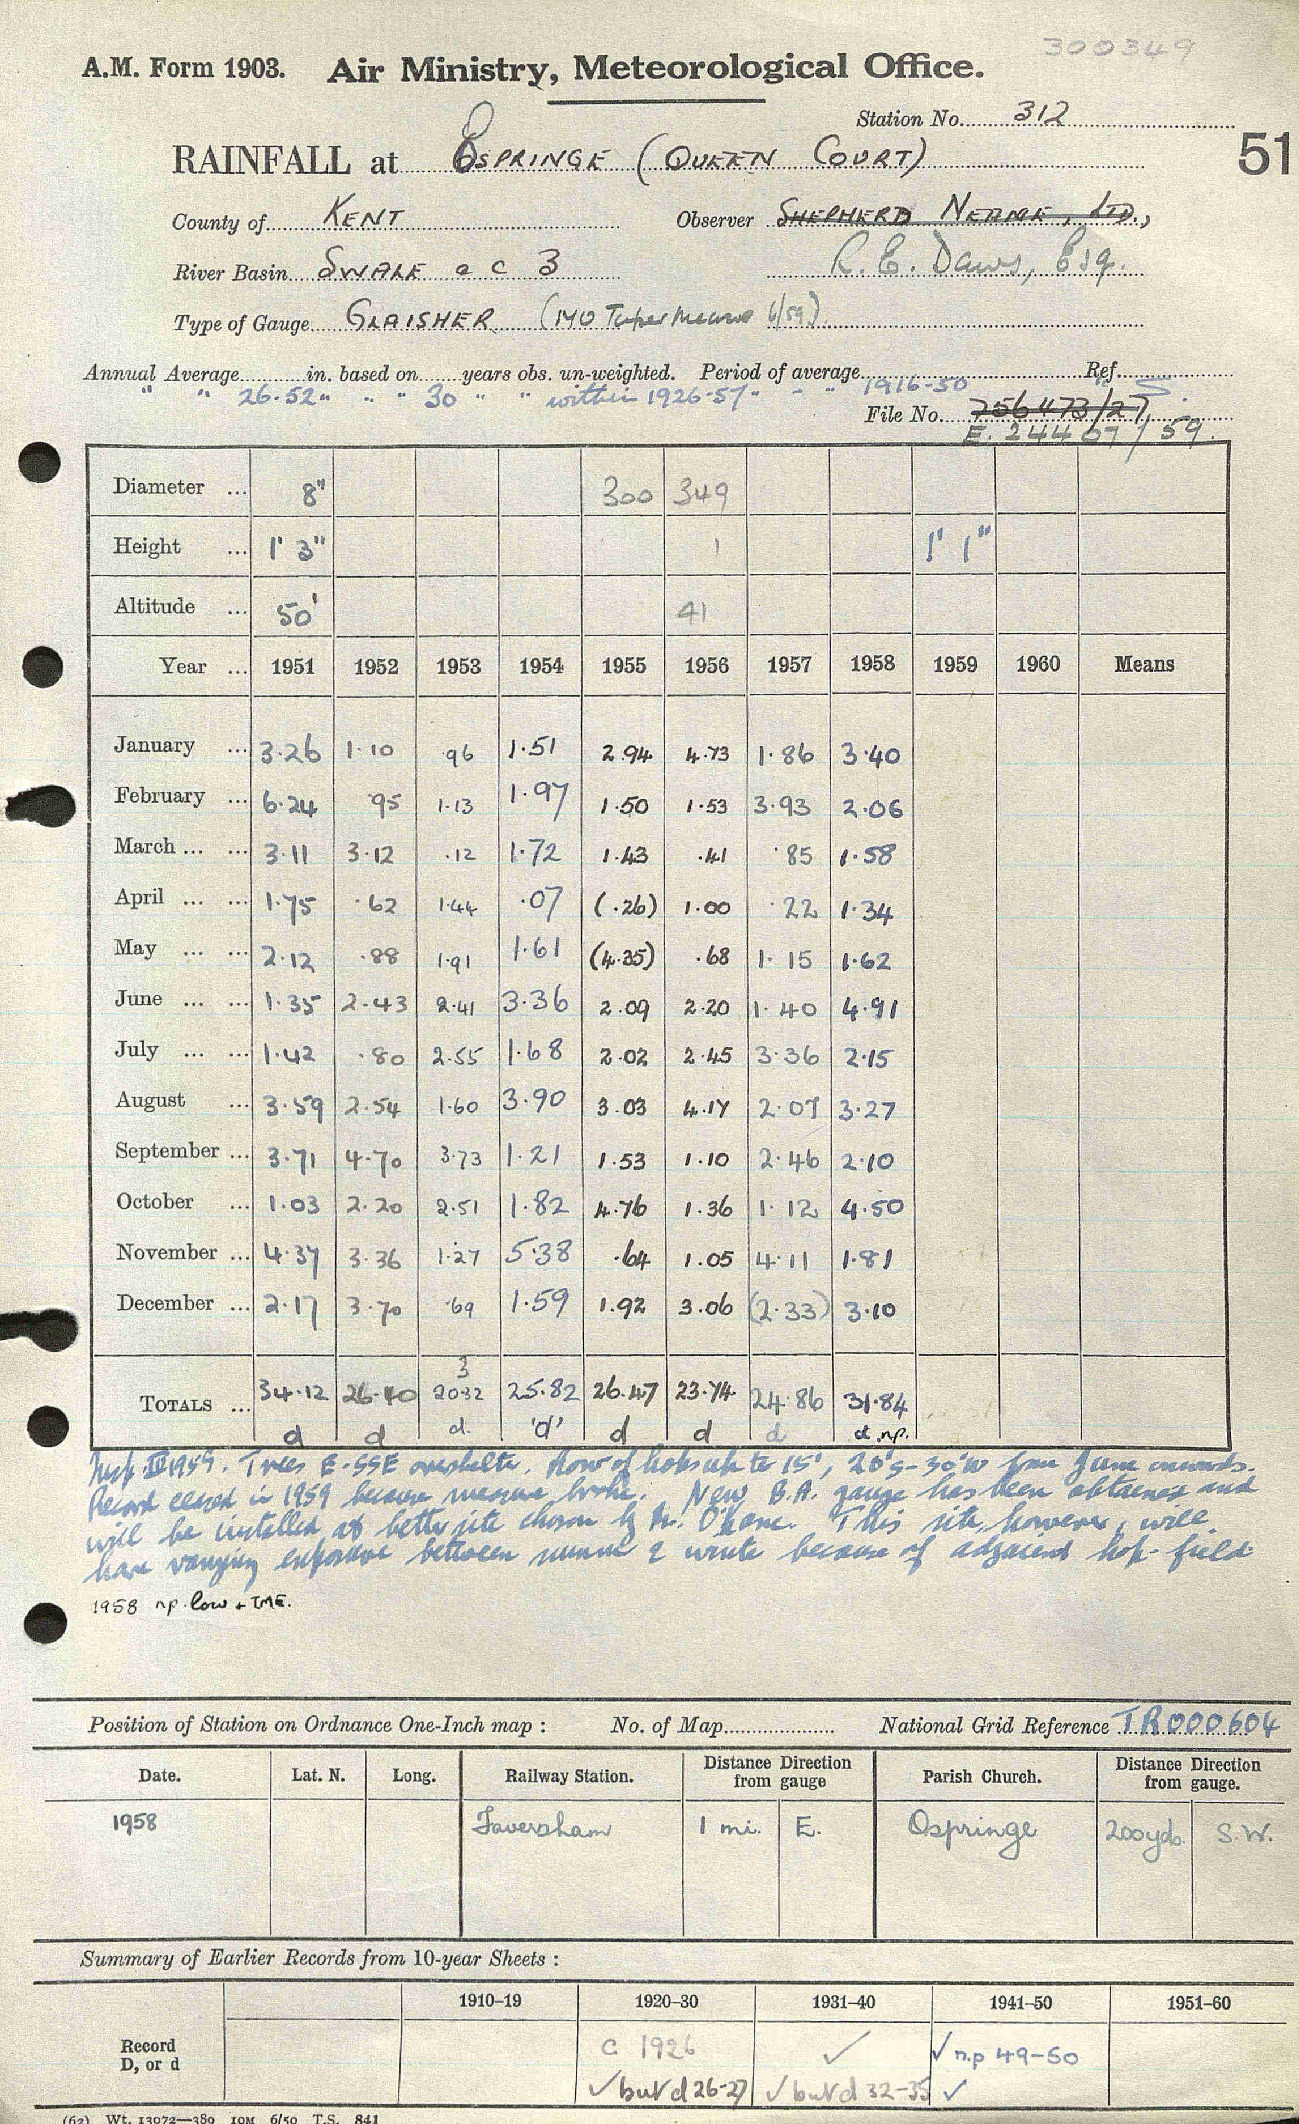 300349
A.M. Form 1903. Air Ministry, Meteorological Office.
Station No. 312
51
RAINFALL at OSPRINGE (QUEEN COURT)
County of KENT Observer SHEPHERD NEAME, LTD.,
River Basin SWALE a c 3 R. E. Daws, Esq.
Type of Gauge GLAISHER (MO Taper Measure 6/59)
Annual Average in. based on years obs. un-weighted. Period of average Ref.
" " 26.52 " " " 30 " " within 1926-57 " - " 1916-50 " S.
File No. 256473/27
E. 24407/59.
Diameter ... 8" 300 349
Height ... 1' 3" 1 1' 1"
Altitude ... 50' 41
Year ... 1951 1952 1953 1954 1955 1956 1957 1958 1959 1960 Means
January ... 3.26 1.10 .96 1.51 2.94 4.73 1.86 3.40
February ... 6.24 .95 1.13 1.97 1.50 1.53 3.93 2.06
March ... ... 3.11 3.12 .12 1.72 1.43 .41 .85 1.58
April ... ... 1.75 .62 1.44 .07 (.26) 1.00 .22 1.34
May ... ... 2.12 .88 1.91 1.61 (4.35) .68 1.15 1.62
June ... ... 1.35 2.43 2.41 3.36 2.09 2.20 1.40 4.91
July ... ... 1.42 .80 2.55 1.68 2.02 2.45 3.36 2.15
August ... 3.59 2.54 1.60 3.90 3.03 4.17 2.07 3.27
September ... 3.71 4.70 3.73 1.21 1.53 1.10 2.46 2.10
October ... 1.03 2.20 2.51 1.82 4.76 1.36 1.12 4.50
November ... 4.37 3.36 1.27 5.38 .64 1.05 4.11 1.81
December ... 2.17 3.70 .69 1.59 1.92 3.06 (2.33) 3.10
3
TOTALS ... 34.12 26.40 2032 25.82 26.47 23.74 24.86 31.84
d d d. 'd' d d d d np.
Insp 1959. Trees E-SSE overshelter. Row of hops up to 15', 20's-30'w from June onwards.
Record ceased in 1959 because measure broke. New B.A. gauge has been obtained and
will be installed at better site chosen by Mr. O'Kane. This site, however, will
have varying exposure between summer & winter because of adjacent hop-field
1958 np. low + TME.
Position of Station on Ordnance One-Inch map : No. of Map National Grid Reference TR000604
Date. Lat. N. Long. Railway Station. Distance Direction from gauge Parish Church. Distance Direction from gauge.
1958 Faversham 1 mi. E. Ospringe 200yds. S.W.
Summary of Earlier Records from 10-year Sheets :
1910-19 1920-30 1931-40 1941-50 1951-60
Record c 1926 ✓ ✓ n.p 49-50
D, or d ✓ but d 26-27 ✓ but d 32-35 ✓
(62) Wt. 13072—380 10M 6/50 T.S. 841